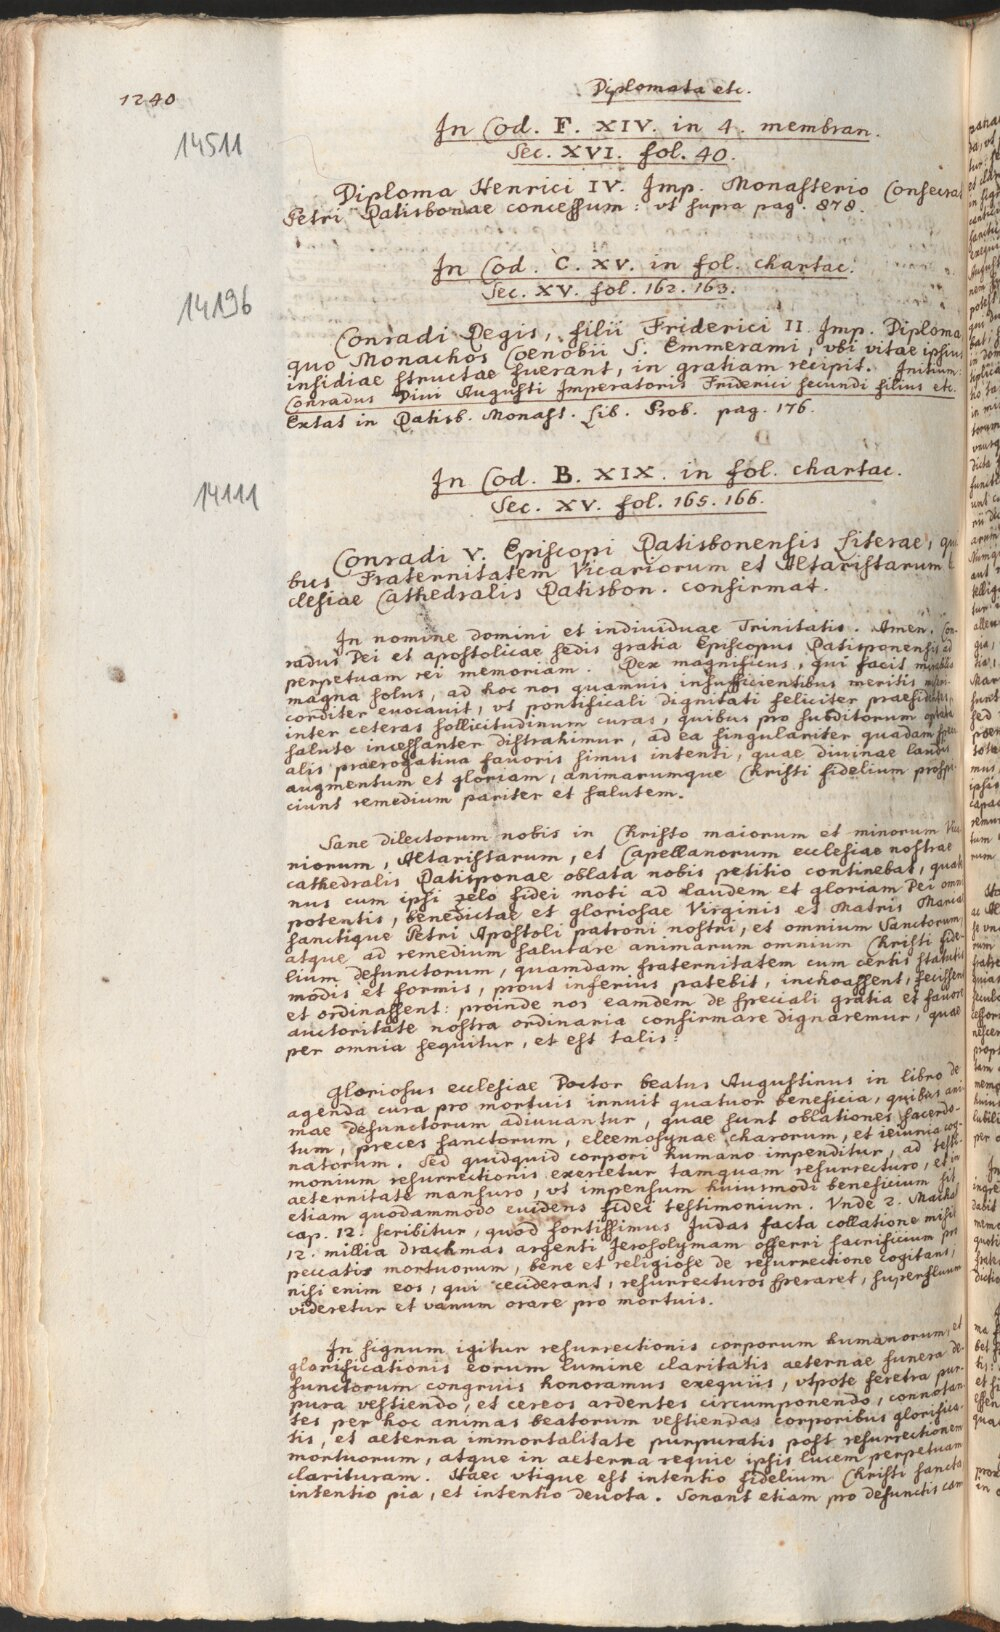 1240
Diplomata etc.
In Cod. F. XIV. in 4. membran.
Sec. XVI. fol. 40.
14511
Diploma Henrici IV. Imp. Monasterio Consecrat
Petri Ratisbonae concessum: vt supra pag. 878.
In Cod. C. XV. in fol. chartac.
Sec. XV. fol. 162. 163.
14196
Conradi Regis, filii Friderici II. Imp. Diploma
quo Monachos Coenobii S. Emmerami, vbi vitae ipsius
insidiae structae fuerant, in gratiam recipit. Initium:
Conradus Divi Augusti Imperatoris Friderici secundi filius etc.
Extat in Ratisb. Monast. Lib. Prob. pag. 176.
In Cod. B. XIX. in fol. chartac.
Sec. XV. fol. 165. 166.
14111
Conradi V. Episcopi Ratisbonensis Literae, qui
bus Fraternitatem Vicariorum et Altaristarum
clesiae Cathedralis Ratisbon. confirmat.
In nomine domini et individuae Trinitatis. Amen. Con-
radus Dei et apostolicae sedis gratia Episcopus Ratisponensis ad
perpetuam rei memoriam. Rex magnificus, qui facit mirabilia
magna solus, ad hoc nos quamuis insufficientibus meritis miseri-
corditer euocauit, vt pontificali dignitati feliciter praesidentes,
inter ceteras sollicitudinum curas, quibus pro subditorum optata
salute incessanter distrahimur, ad ea singulariter quadam speci
alis praerogatiua fauoris simus intenti, quae diuinae laudis
augmentum et gloriam, animarumque Christi fidelium prospi-
ciunt remedium pariter et salutem.
Sane dilectorum nobis in Christo maiorum et minorum Vica
niorum, Altaristarum, et Capellanorum ecclesiae nostrae
cathedralis Ratisponae oblata nobis petitio continebat, quate
nus cum ipsi zelo fidei moti ad laudem et gloriam Dei omni
potentis, benedictae et gloriosae Virginis et Matris Mariae
sanctique Petri Apostoli patroni nostri, et omnium Sanctorum,
atque ad remedium salutare animarum omnium Christi fide-
lium defunctorum, quamdam fraternitatem cum certis statutis
modis et formis, prout inferius patebit, inchoassent, fecissent
et ordinassent: proinde nos eamdem de speciali gratia et fauore
auctoritate nostra ordinaria confirmare dignaremur, quae
per omnia sequitur, et est talis:
Gloriosus ecclesiae Doctor beatus Augustinus in libro de
agenda cura pro mortuis innuit quatuor beneficia, quibus ani
mae defunctorum adiuuantur, quae sunt oblationes sacerdo-
tum, preces sanctorum, eleemosynae charorum, et ieiunia cog-
natorum. Sed quidquid corpori humano impenditur, ad testi-
monium resurrectionis exercetur tamquam resurrecturo, et in
aeternitate mansuro, vt impensum huiusmodi beneficium sit
etiam quodammodo euidens fidei testimonium. Vnde 2. Machab
cap. 12. scribitur, quod fortissimus Judas facta collatione misit
12. millia drachmas argenti Jerosolymam offerri sacrificium pro
peccatis mortuorum, bene et religiose de resurrectione cogitans,
nisi enim eos, qui ceciderant, resurrecturos speraret, superfluum
videretur et vanum orare pro mortuis.
In signum igitur resurrectionis corporum humanorum, et
glorificationis eorum lumine claritatis aeternae funera de-
functorum congruis honoramus exequiis, vtpote feretra pur-
pura vestiendo, et cereos ardentes circumponendo, connotan
tes per hoc animas beatorum vestiendas corporibus glorifica-
tis, et aeterna immortalitate purpuratis post resurrectionem
mortuorum, atque in aeterna requie ipsis lucem perpetuam
clarituram. Haec vtique est intentio fidelium Christi sancta
intentio pia, et intentio deuota. Sonant etiam pro defunctis cam